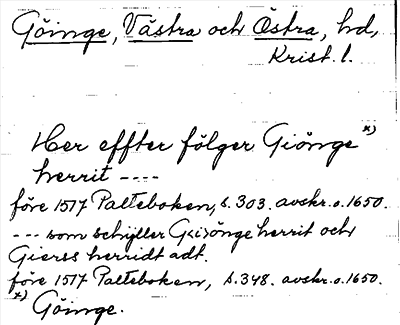 Göinge, Västra och Östra, hd,
Krist. l.
Her effter fölger Giönge *)
herrit ----
före 1517 Palteboken, s. 303. avskr. o. 1650.
--- som schiller G(i)önge herrit och
Gierss herridt adt.
före 1517 Palteboken, s. 348. avskr. o. 1650.
*) Göinge.